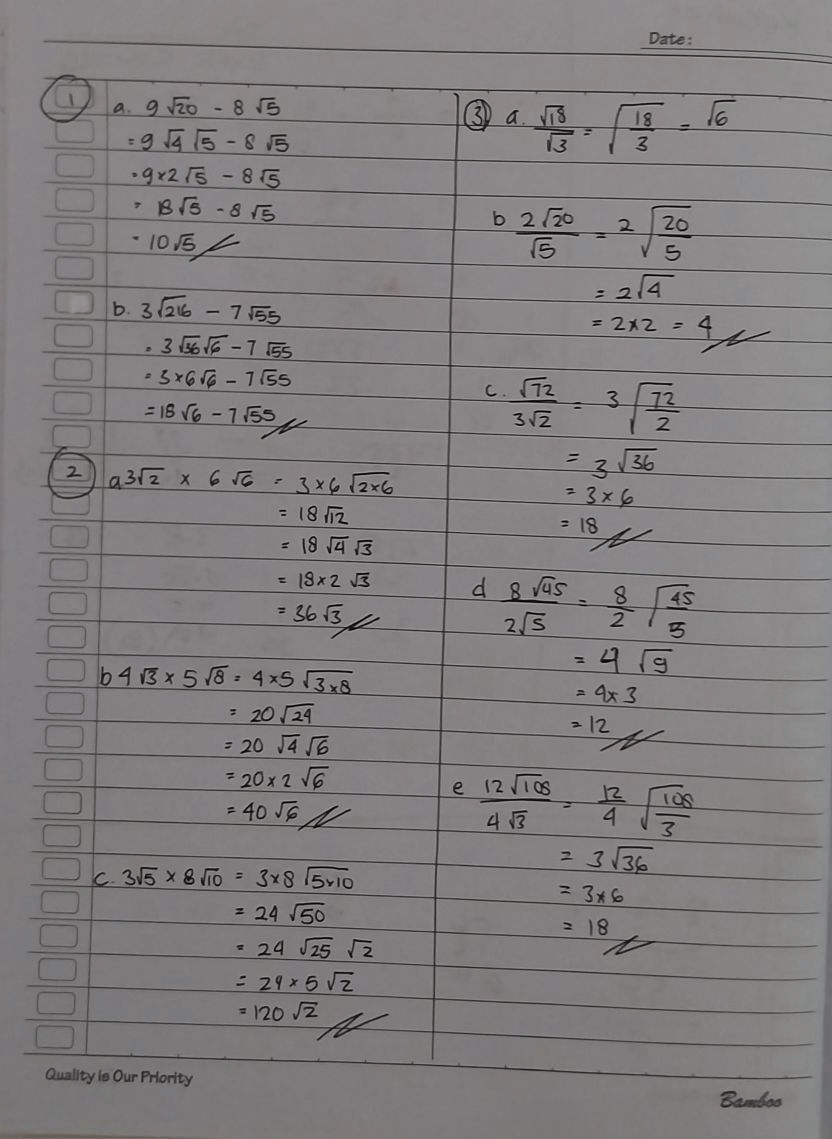 Date:
① a. 9√20 - 8√5
= 9√4 √5 - 8√5
= 9×2√5 - 8√5
= 18√5 - 8√5
= 10√5
b. 3√216 - 7√55
= 3√36√6 - 7√55
= 3×6√6 - 7√55
= 18√6 - 7√55
② a 3√2 × 6√6 = 3×6√2×6
= 18√12
= 18√4 √3
= 18×2√3
= 36√3
b 4√3 × 5√8 = 4×5√3×8
= 20√24
= 20 √4 √6
= 20×2√6
= 40√6
c. 3√5 × 8√10 = 3×8√5×10
= 24√50
= 24 √25 √2
= 24×5√2
= 120√2
③ a. √18/√3 = √18/3 = √6
b 2√20/√5 = 2√20/5
= 2√4
= 2×2 = 4
c. √72/3√2 = 3√72/2
= 3√36
= 3×6
= 18
d 8√45/2√5 = 8/2 √45/5
= 4√9
= 4×3
= 12
e 12√108/4√3 = 12/4 √108/3
= 3√36
= 3×6
= 18
Quality is Our Priority
Bamboo